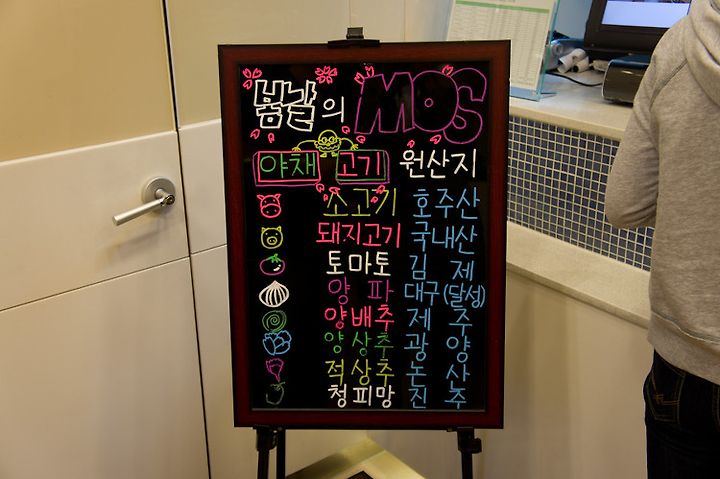 봄날의 MOS
야채 고기 원산지
소고기 호주산
돼지고기 국내산
토마토 김제
양파 대구(달성)
양배추 제주
양상추 광양
적상추 논산
청피망 진주